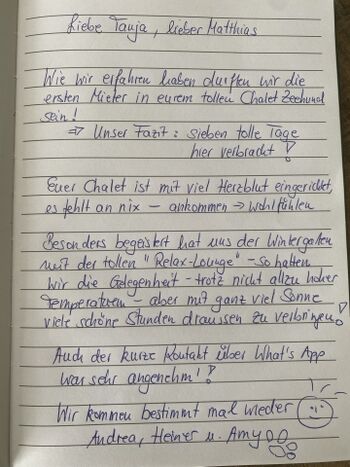 Liebe Tanja, lieber Matthias
Wie wir erfahren haben durften wir die
ersten Mieter in eurem tollen Chalet Zeehund
sein!
⇒ Unser Fazit: sieben tolle Tage
hier verbracht!
Euer Chalet ist mit viel Herzblut eingerichtet,
es fehlt an nix – ankommen → wohlfühlen
Besonders begeistert hat uns der Wintergarten
mit der tollen "Relax-Lounge" – so hatten
wir die Gelegenheit – trotz nicht allzu hoher
Temperaturen – aber mit ganz viel Sonne
viele schöne Stunden draussen zu verbringen!
Auch der kurze Kontakt über What's App
war sehr angenehm!
Wir kommen bestimmt mal wieder
Andrea, Heiner u. Amy